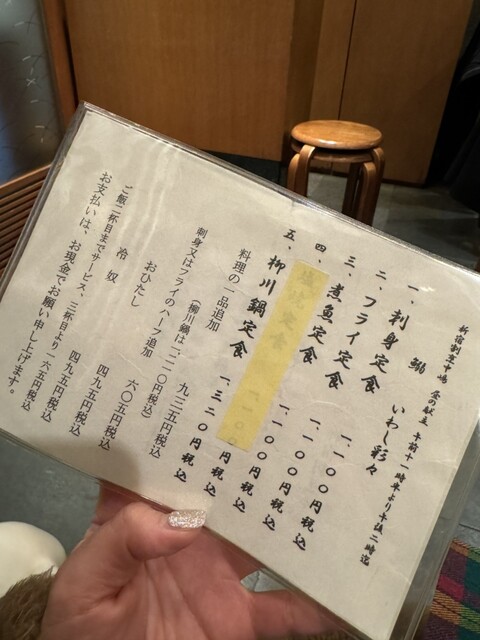 新宿割烹中嶋 昼の献立 午前十一時半より午後二時迄
鰯 いわし彩々
一、刺身定食 一、一〇〇円税込
二、フライ定食 一、一〇〇円税込
三、煮魚定食 一、一〇〇円税込
四、塩焼定食 一、一〇〇
五、柳川鍋定食 一、三二〇円税込
料理の一品追加 九三五円税込
(柳川鍋は一、二一〇円税込)
刺身又はフライのハーフ追加 六〇五円税込
おひたし 四九五円税込
冷奴 四九五円税込
ご飯二杯目までサービス、三杯目より一六五円税込
お支払いは、お現金でお願い申し上げます。